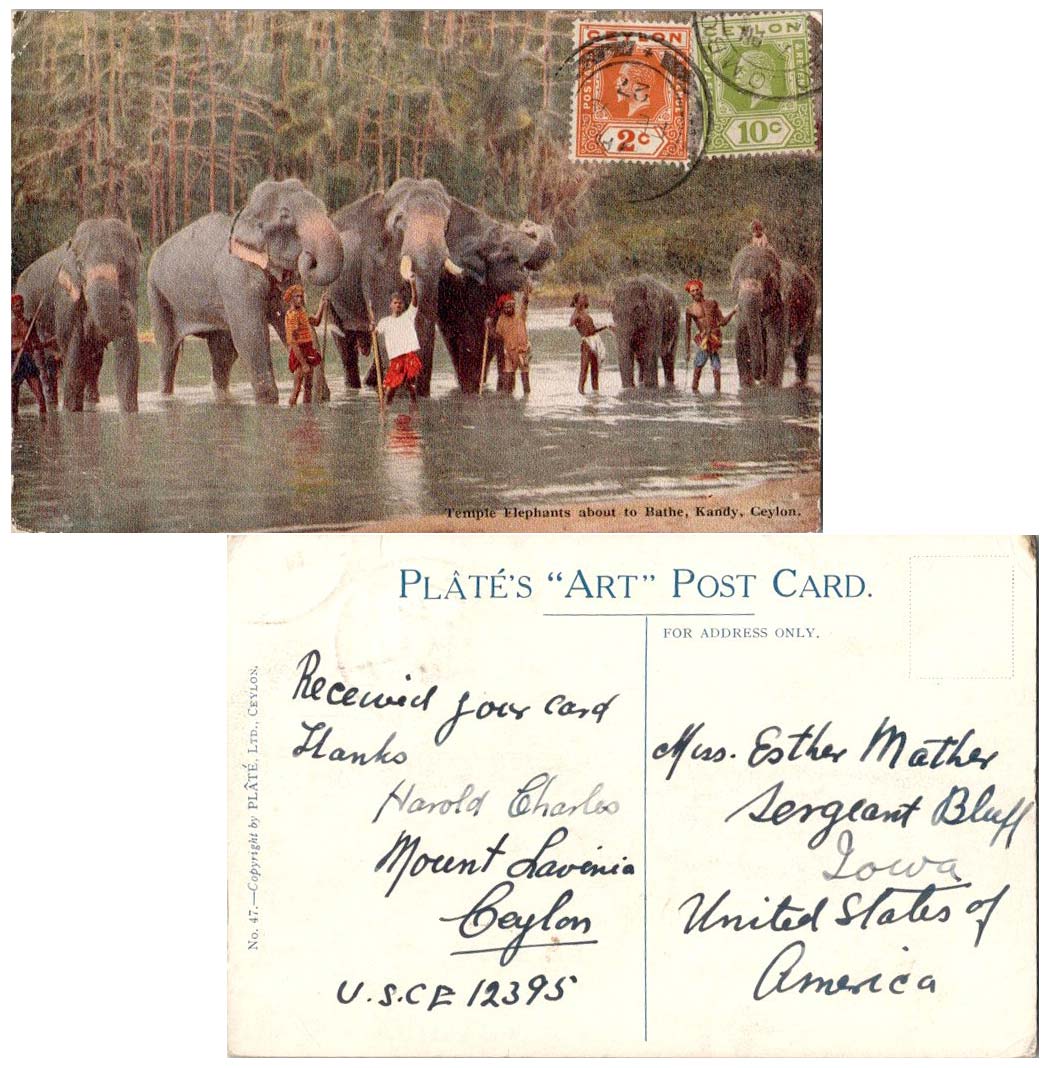 CEYLON
POSTAGE
2c
CEYLON
10c
23
Temple Elephants about to Bathe, Kandy, Ceylon.
PLÂTÉ'S "ART" POST CARD.
FOR ADDRESS ONLY.
No. 47.—Copyright by PLÂTÉ, LTD., CEYLON.
Received your card
Thanks
Harold Charles
Mount Lavinia
Ceylon
U.S.CE 12395
Miss. Esther Mather
Sergeant Bluff
Iowa
United States of
America